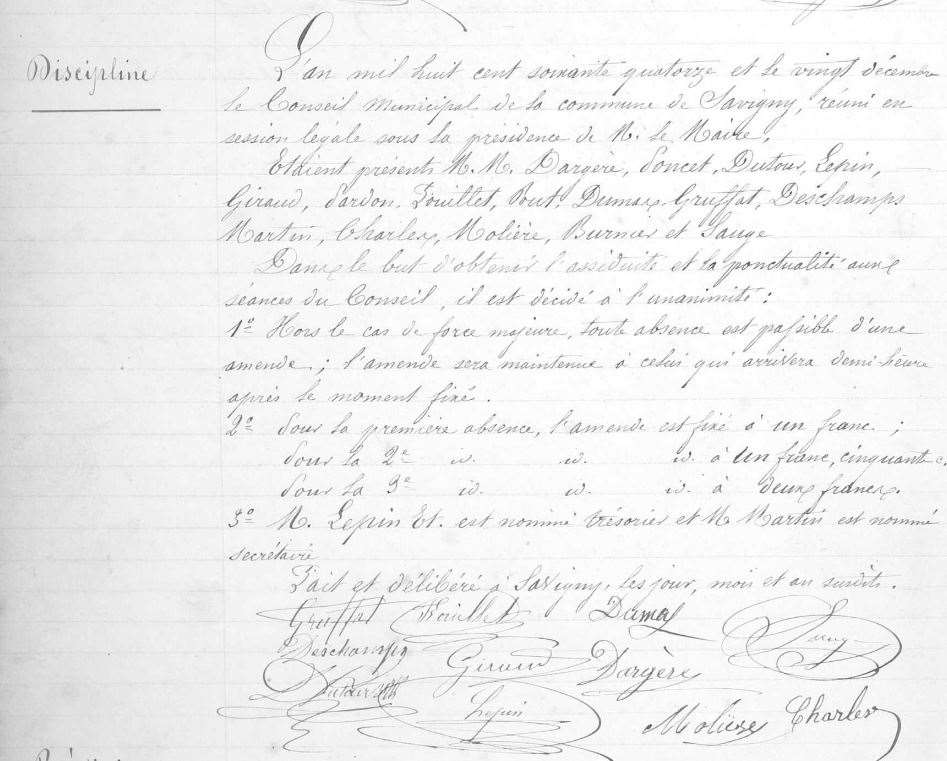 Discipline
L'an mil huit cent soixante quatorze et le vingt décembre
le Conseil Municipal de la commune de Savigny, réuni en
session légale sous la présidence de M. le Maire,
Etaient présents M.M. Dargère, Poncet, Dutour, Lepin,
Giraud, Pardon, Fouillet, Pout, Dumas, Gruffat, Deschamps
Martin, Charles, Molière, Burnier et Sauge
Dans le but d'obtenir l'assiduité et la ponctualité aux
séances du Conseil, il est décidé à l'unanimité :
1º Hors le cas de force majeure, toute absence est passible d'une
amende ; l'amende sera maintenue à celui qui arrivera demi-heure
après le moment fixé.
2º Pour la première absence, l'amende est fixé à un franc ;
Pour la 2e id. id. id. à un franc, cinquante c.
Pour la 3e id. id. id. à deux francs.
3º M. Lepin Et. est nommé trésorier et M Martin est nommé
secrétaire
Fait et délibéré à Savigny, les jour, mois et an susdits.
Gruffat Fouillet Dumas Sauge
Deschamps Giraud Dargère
Dutour Lepin Molière Charles